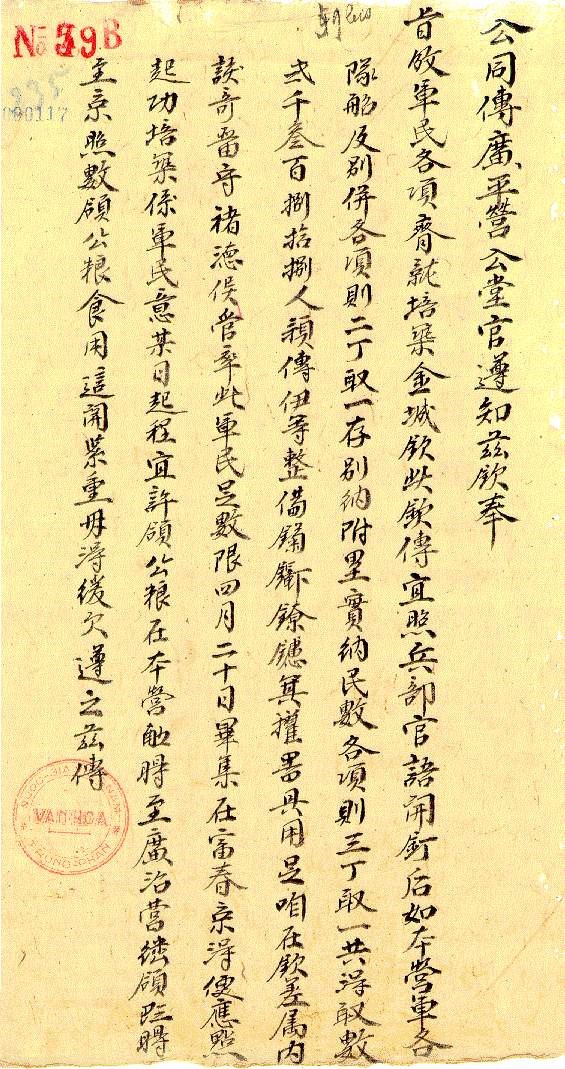 公同傳廣平營公堂官遵知茲欽奉
旨放軍民各項齊就培築金城欽此欽傳宜照兵部官語開釘后如本營軍各
隊船及別併各項則二丁取一存別納附壘實納民數各項則三丁取一共淂取數
弐千叁百捌拾捌人預傳伊等整備鐍鐐鏸箕擢器具用足咱在欽差属内
該奇畱守褚德侯管率此軍民足數限四月二十日畢集在富春京淂便應點
起功培築係軍民意某日起程宜許領公粮在本營𣃣時至廣治營継領𧿫時
至京照數領公粮食用這開紫重毋淂緩欠遵之茲傳
No 59B
000117
QUỐC GIA VIỆT NAM
VĂN HÓA
TRUNG PHẦN